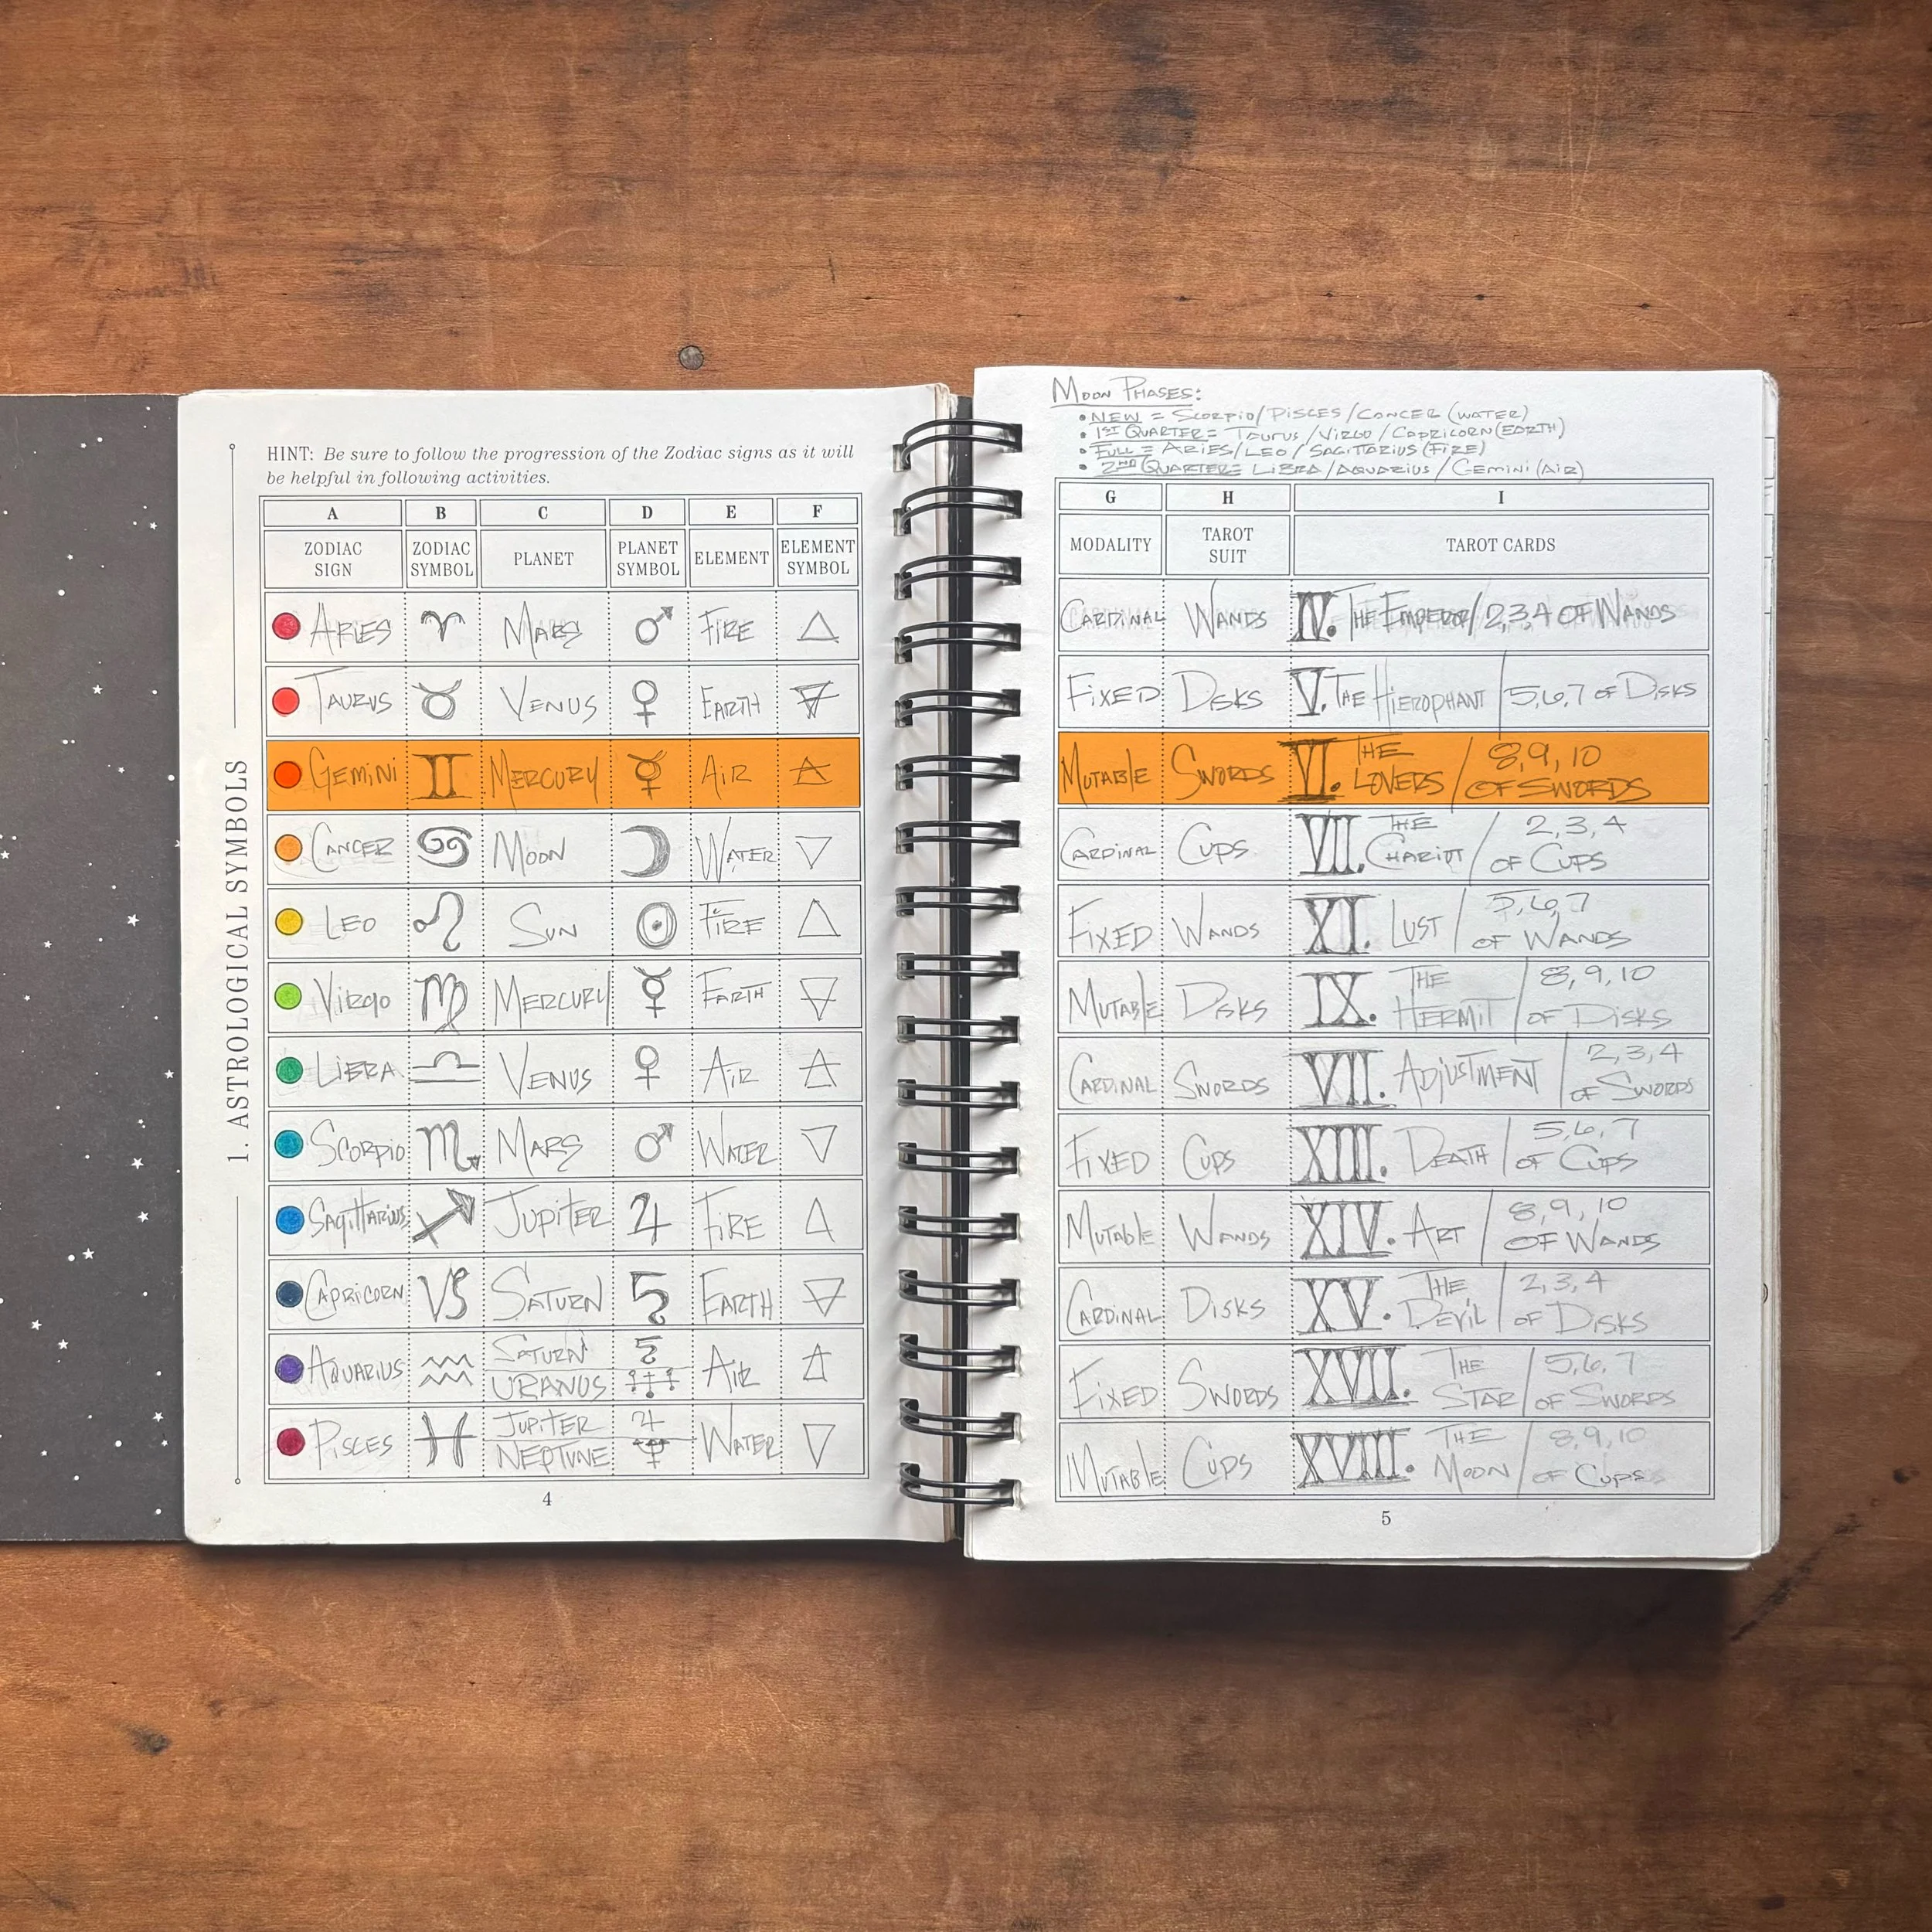 HINT: Be sure to follow the progression of the Zodiac signs as it will
be helpful in following activities.
1. ASTROLOGICAL SYMBOLS
A B C D E F
ZODIAC SIGN ZODIAC SYMBOL PLANET PLANET SYMBOL ELEMENT ELEMENT SYMBOL
ARIES ♈ MARS ♂ FIRE 🜂
TAURUS ♉ VENUS ♀ EARTH 🜃
GEMINI ♊ MERCURY ☿ AIR 🜁
CANCER ♋ MOON ☽ WATER 🜄
LEO ♌ SUN ☉ FIRE 🜂
VIRGO ♍ MERCURY ☿ EARTH 🜃
LIBRA ♎ VENUS ♀ AIR 🜁
SCORPIO ♏ MARS ♂ WATER 🜄
SAGITTARIUS ♐ JUPITER ♃ FIRE 🜂
CAPRICORN ♑ SATURN ♄ EARTH 🜃
AQUARIUS ♒ SATURN URANUS ♄ ♅ AIR 🜁
PISCES ♓ JUPITER NEPTUNE ♃ ♆ WATER 🜄
4
MOON PHASES:
• NEW = SCORPIO/PISCES/CANCER (WATER)
• 1ST QUARTER = TAURUS/VIRGO/CAPRICORN (EARTH)
• FULL = ARIES/LEO/SAGITTARIUS (FIRE)
• 2ND QUARTER = LIBRA/AQUARIUS/GEMINI (AIR)
G H I
MODALITY TAROT SUIT TAROT CARDS
CARDINAL WANDS IV. THE EMPEROR/2,3,4 OF WANDS
FIXED DISKS V. THE HIEROPHANT/5,6,7 OF DISKS
MUTABLE SWORDS VI. THE LOVERS/8,9,10 OF SWORDS
CARDINAL CUPS VII. THE CHARIOT/2,3,4 OF CUPS
FIXED WANDS XI. LUST/5,6,7 OF WANDS
MUTABLE DISKS IX. THE HERMIT/8,9,10 OF DISKS
CARDINAL SWORDS VII. ADJUSTMENT/2,3,4 OF SWORDS
FIXED CUPS XIII. DEATH/5,6,7 OF CUPS
MUTABLE WANDS XIV. ART/8,9,10 OF WANDS
CARDINAL DISKS XV. THE DEVIL/2,3,4 OF DISKS
FIXED SWORDS XVII. THE STAR/5,6,7 OF SWORDS
MUTABLE CUPS XVIII. THE MOON/8,9,10 OF CUPS
5